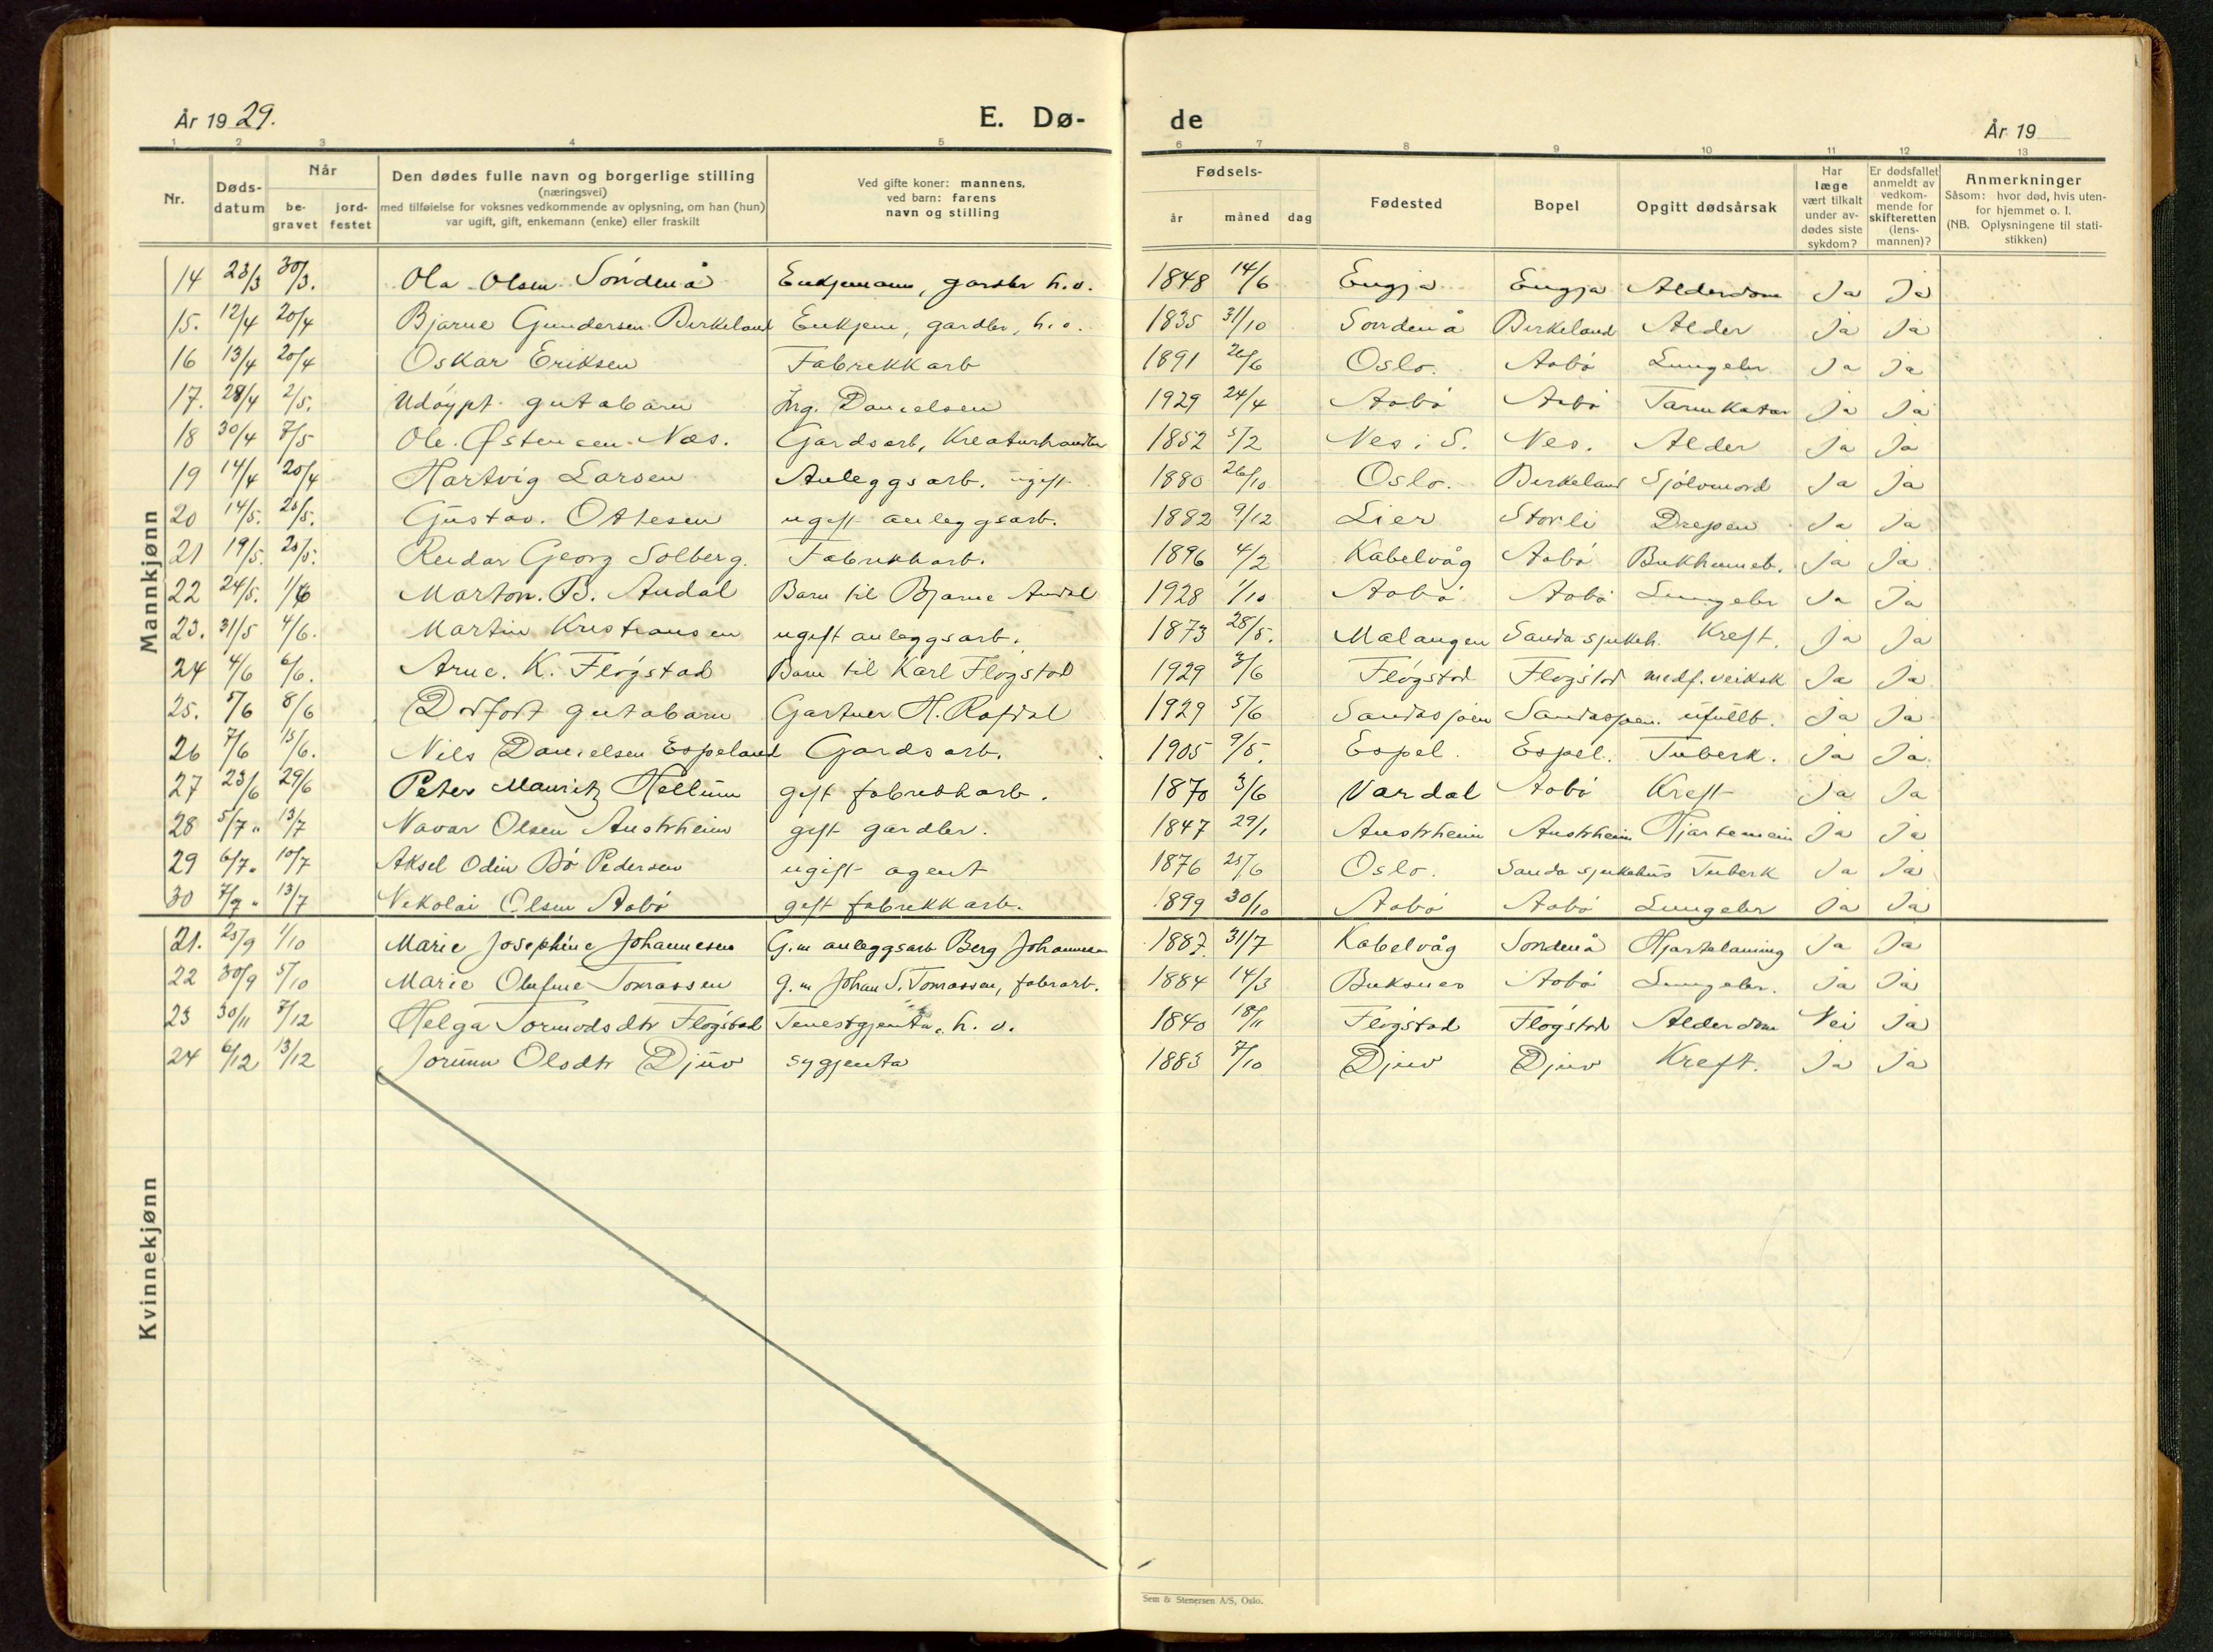 År 19 29.
E. Dø-
de
År 19
1 2 3 4 5 6 7 8 9 10 11 12 13
Nr.
Døds-
datum
Når
be-
gravet
jord-
festet
Den dødes fulle navn og borgerlige stilling
(næringsvei)
med tilføielse for voksnes vedkommende av oplysning, om han (hun)
var ugift, gift, enkemann (enke) eller fraskilt
Ved gifte koner: mannens,
ved barn: farens
navn og stilling
Fødsels-
år måned dag
Fødested
Bopel
Opgitt dødsårsak
Har
læge
vært tilkalt
under av-
dødes siste
sykdom?
Er dødsfallet
anmeldt av
vedkom-
mende for
skifteretten
(lens-
mannen)?
Anmerkninger
Såsom: hvor død, hvis uten-
for hjemmet o. l.
(NB. Oplysningene til stati-
stikken)
Mannkjønn
14 23/3 30/3. Ola Olsen Søndenå Enkjemann, gardbr h.o. 1848 14/6 Engja Engja Alderdom Ja Ja
15. 12/4 20/4 Bjarne Gundersen Birkeland Enkjem, gardbr, h.o. 1835 31/10 Søndenå Birkeland Alder Ja Ja
16 13/4 20/4 Oskar Eriksen Fabrikkarb 1891 26/6 Oslo. Aabø Lungebr Ja Ja
17. 28/4 2/5. Udøypt gutabarn Ing. Danielsen 1929 24/4 Aabø Aabø Tarmkatar Ja Ja
18 30/4 7/5 Ole Østensen Næs. Gardsarb, Kreaturhandler 1852 5/2 Nes i S. Nes. Alder Ja Ja
19 14/4 20/4 Hartvig Larsen Anleggsarb. ugift 1880 26/10 Oslo. Birkeland Sjølvmord Ja Ja
20 14/5. 25/5. Gustav. Ottesen ugift anleggsarb. 1882 9/12 Lier Storli Drepen Ja Ja
21 19/5. 25/5. Reidar Georg Solberg. Fabrikkarb. 1896 4/2 Kabelvåg Aabø Bukhinneb. Ja Ja
22 24/5. 1/6 Marton. B. Audal Barn til Bjarne Audal 1928 1/10 Aabø Aabø Lungebr Ja Ja
23. 31/5 4/6. Martin Kristiansen ugift anleggsarb. 1873 28/5. Malangen Sauda sjukeh. Kreft. Ja Ja
24 4/6 6/6. Arne. K. Fløgstad Barn til Karl Fløgstad 1929 3/6 Fløgstad Fløgstad medf. veiksk Ja Ja
25. 5/6 8/6 Dødfødt gutabarn Gartner H. Røfdal 1929 5/6 Saudasjøen Saudasjøen. ufullb. Ja Ja
26 7/6 15/6. Nils Danielsen Espeland Gardsarb. 1905 9/5. Espel. Espel. Tuberk. Ja Ja
27 23/6 29/6 Peter Mauritz Hellum gift fabrikkarb. 1870 3/6 Vardal Aabø Kreft Ja Ja
28 5/7 13/7 Navar Olsen Austrheim gift gardbr. 1847 29/1 Austrheim Austrheim Hjartemein Ja Ja
29 6/7. 10/7 Aksel Odin Bø Pedersen ugift agent 1876 25/6 Oslo. Sauda sjukehus Tuberk Ja Ja
30 7/7 13/7 Nikolai Olsen Aabø gift fabrikkarb. 1899 30/10 Aabø Aabø Lungebr Ja Ja
Kvinnekjønn
21. 25/9 1/10 Marie Josephine Johannesen G.m anleggsarb Berg Johannesen 1887. 31/7 Kabelvåg Søndenå Hjartelaming Ja Ja
22 30/9 5/10 Marie Olufine Tomassen g.m Johan S. Tomassen, fabrarb. 1884 14/3 Buksnes Aabø Lungebr. Ja Ja
23 30/11 7/12 Helga Tormodsdtr Fløgstad Tenestgjenta, h.o. 1840 18/11 Fløgstad Fløgstad Alderdom Nei Ja
24 6/12 13/12 Jorunn Olsdtr Djuv sygjenta 1883 7/10 Djuv Djuv Kreft. Ja Ja
Sem & Stenersen A/S, Oslo.